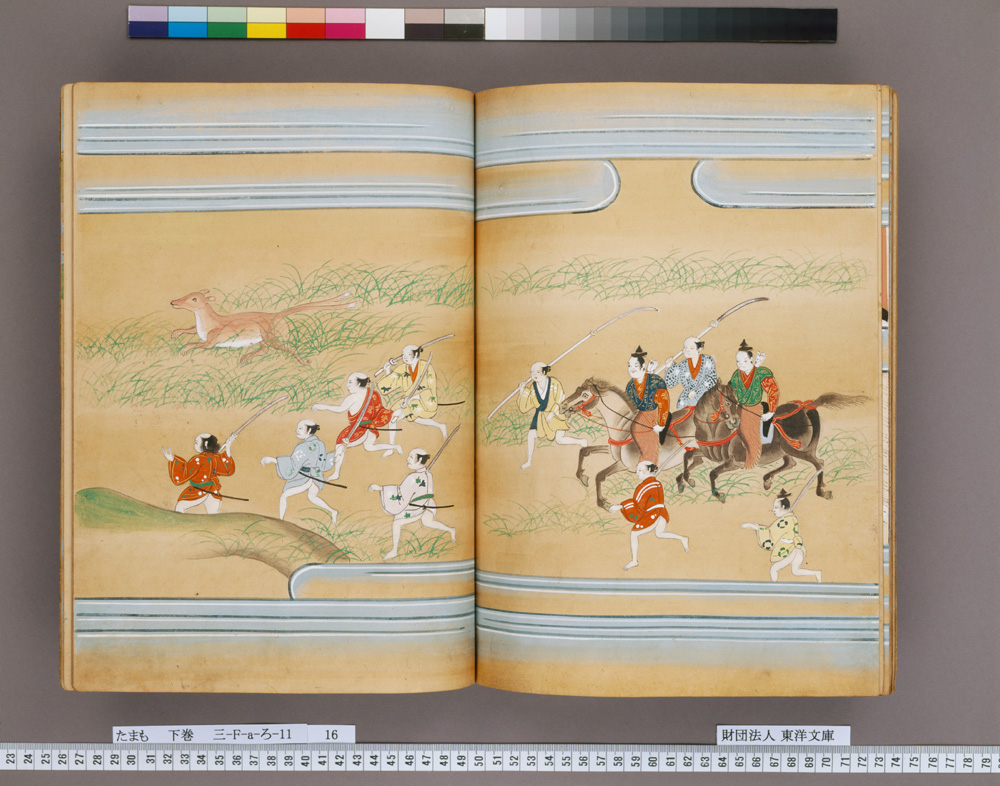 たまも 下巻 三-F-a-ろ-11 16
財団法人 東洋文庫
23 24 25 26 27 28 29 30 31 32 33 34 35 36 37 38 39 40 41 42 43 44 45 46 47 48 49 50 51 52 53 54 55 56 57 58 59 60 61 62 63 64 65 66 67 68 69 70 71 72 73 74 75 76 77 78 79